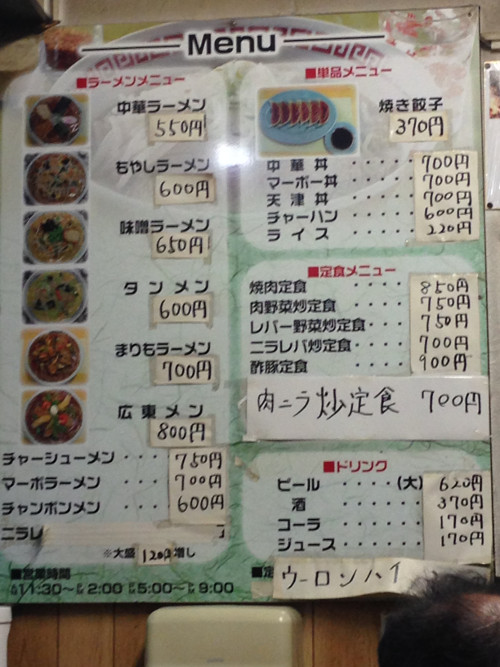 Menu
■ラーメンメニュー
中華ラーメン
550円
もやしラーメン
600円
味噌ラーメン
650円
タンメン
600円
まりもラーメン
700円
広東メン
800円
チャーシューメン ・・・ 750円
マーボラーメン ・・・ 700円
チャンポンメン ・・・ 600円
ニラレ
※大盛 120円増し
■営業時間
11:30～2:00 5:00～9:00
■単品メニュー
焼き餃子
370円
中華丼 ・・・・ 700円
マーボー丼 ・・・・ 700円
天津丼 ・・・・ 700円
チャーハン ・・・・ 600円
ライス ・・・・ 220円
■定食メニュー
焼肉定食 ・・・・・ 850円
肉野菜炒定食・・・・ 750円
レバー野菜炒定食・・・ 750円
ニラレバ炒定食・・・・ 700円
酢豚定食 ・・・・・ 900円
肉ニラ炒定食 700円
■ドリンク
ビール ・・・・・(大) 620円
酒 ・・・・・ 370円
コーラ ・・・・・ 170円
ジュース ・・・・・ 170円
■定
ウーロンハイ